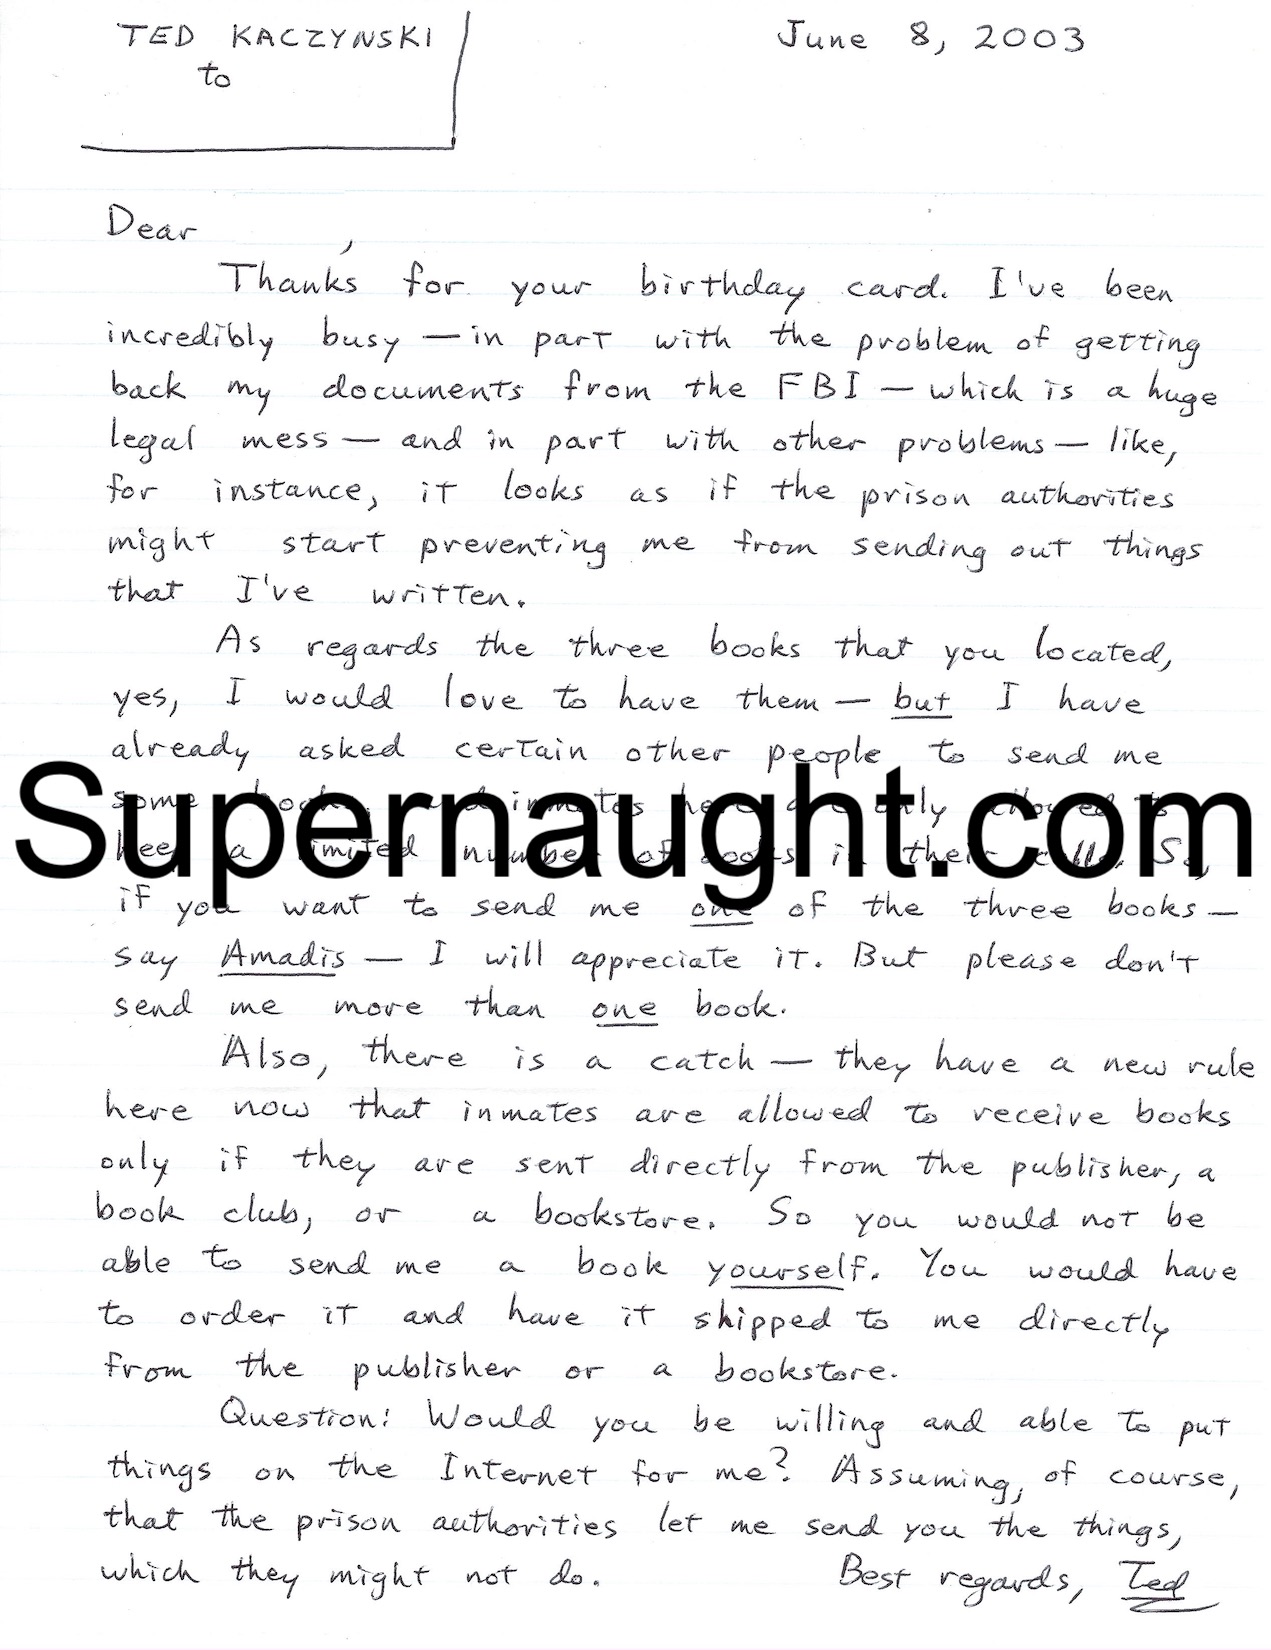 TED KACZYNSKI
to
June 8, 2003
Dear ,
Thanks for your birthday card. I've been
incredibly busy — in part with the problem of getting
back my documents from the FBI — which is a huge
legal mess — and in part with other problems — like,
for instance, it looks as if the prison authorities
might start preventing me from sending out things
that I've written.
As regards the three books that you located,
yes, I would love to have them — but I have
already asked certain other people to send me
some books, and inmates here are only allowed to
keep a limited number of books in their cells. So,
Supernaught.com
if you want to send me one of the three books —
say Amadis — I will appreciate it. But please don't
send me more than one book.
Also, there is a catch — they have a new rule
here now that inmates are allowed to receive books
only if they are sent directly from the publisher, a
book club, or a bookstore. So you would not be
able to send me a book yourself. You would have
to order it and have it shipped to me directly
from the publisher or a bookstore.
Question: Would you be willing and able to put
things on the Internet for me? Assuming, of course,
that the prison authorities let me send you the things,
which they might not do. Best regards, Ted